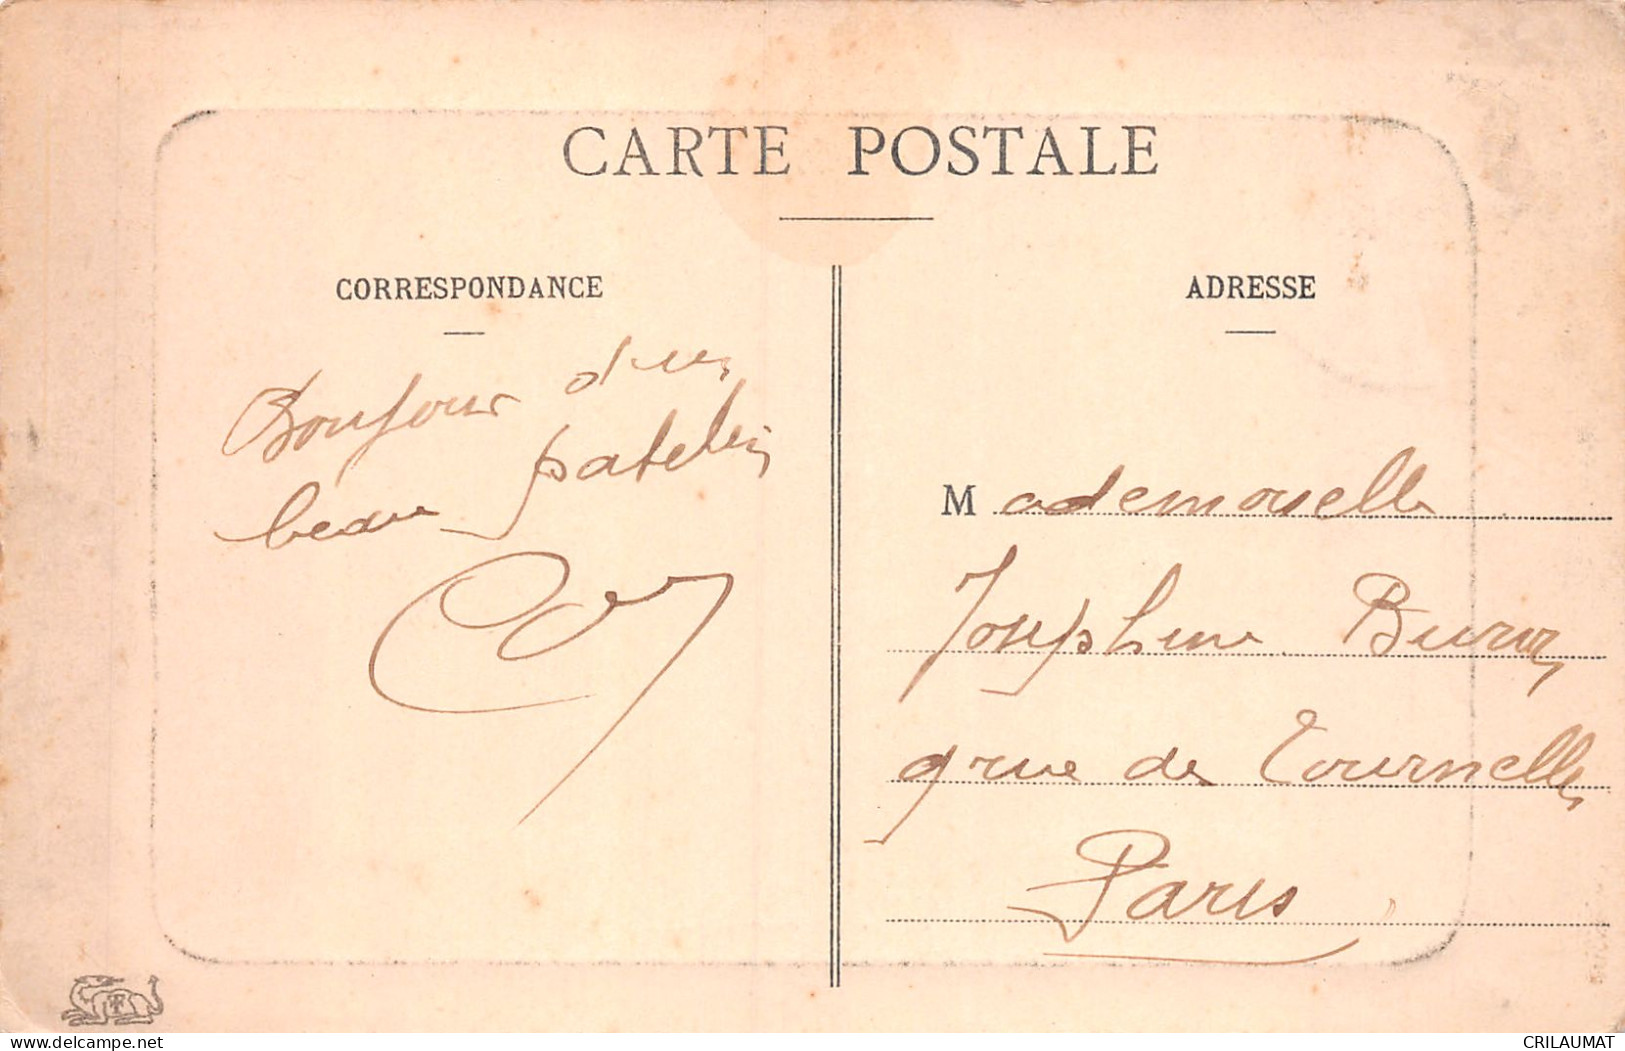 CARTE POSTALE
CORRESPONDANCE
Bonjour d'un
beau patelin
ADRESSE
Mademoiselle
Josephine
9 rue de Tournelles
Paris
CRILAUMAT